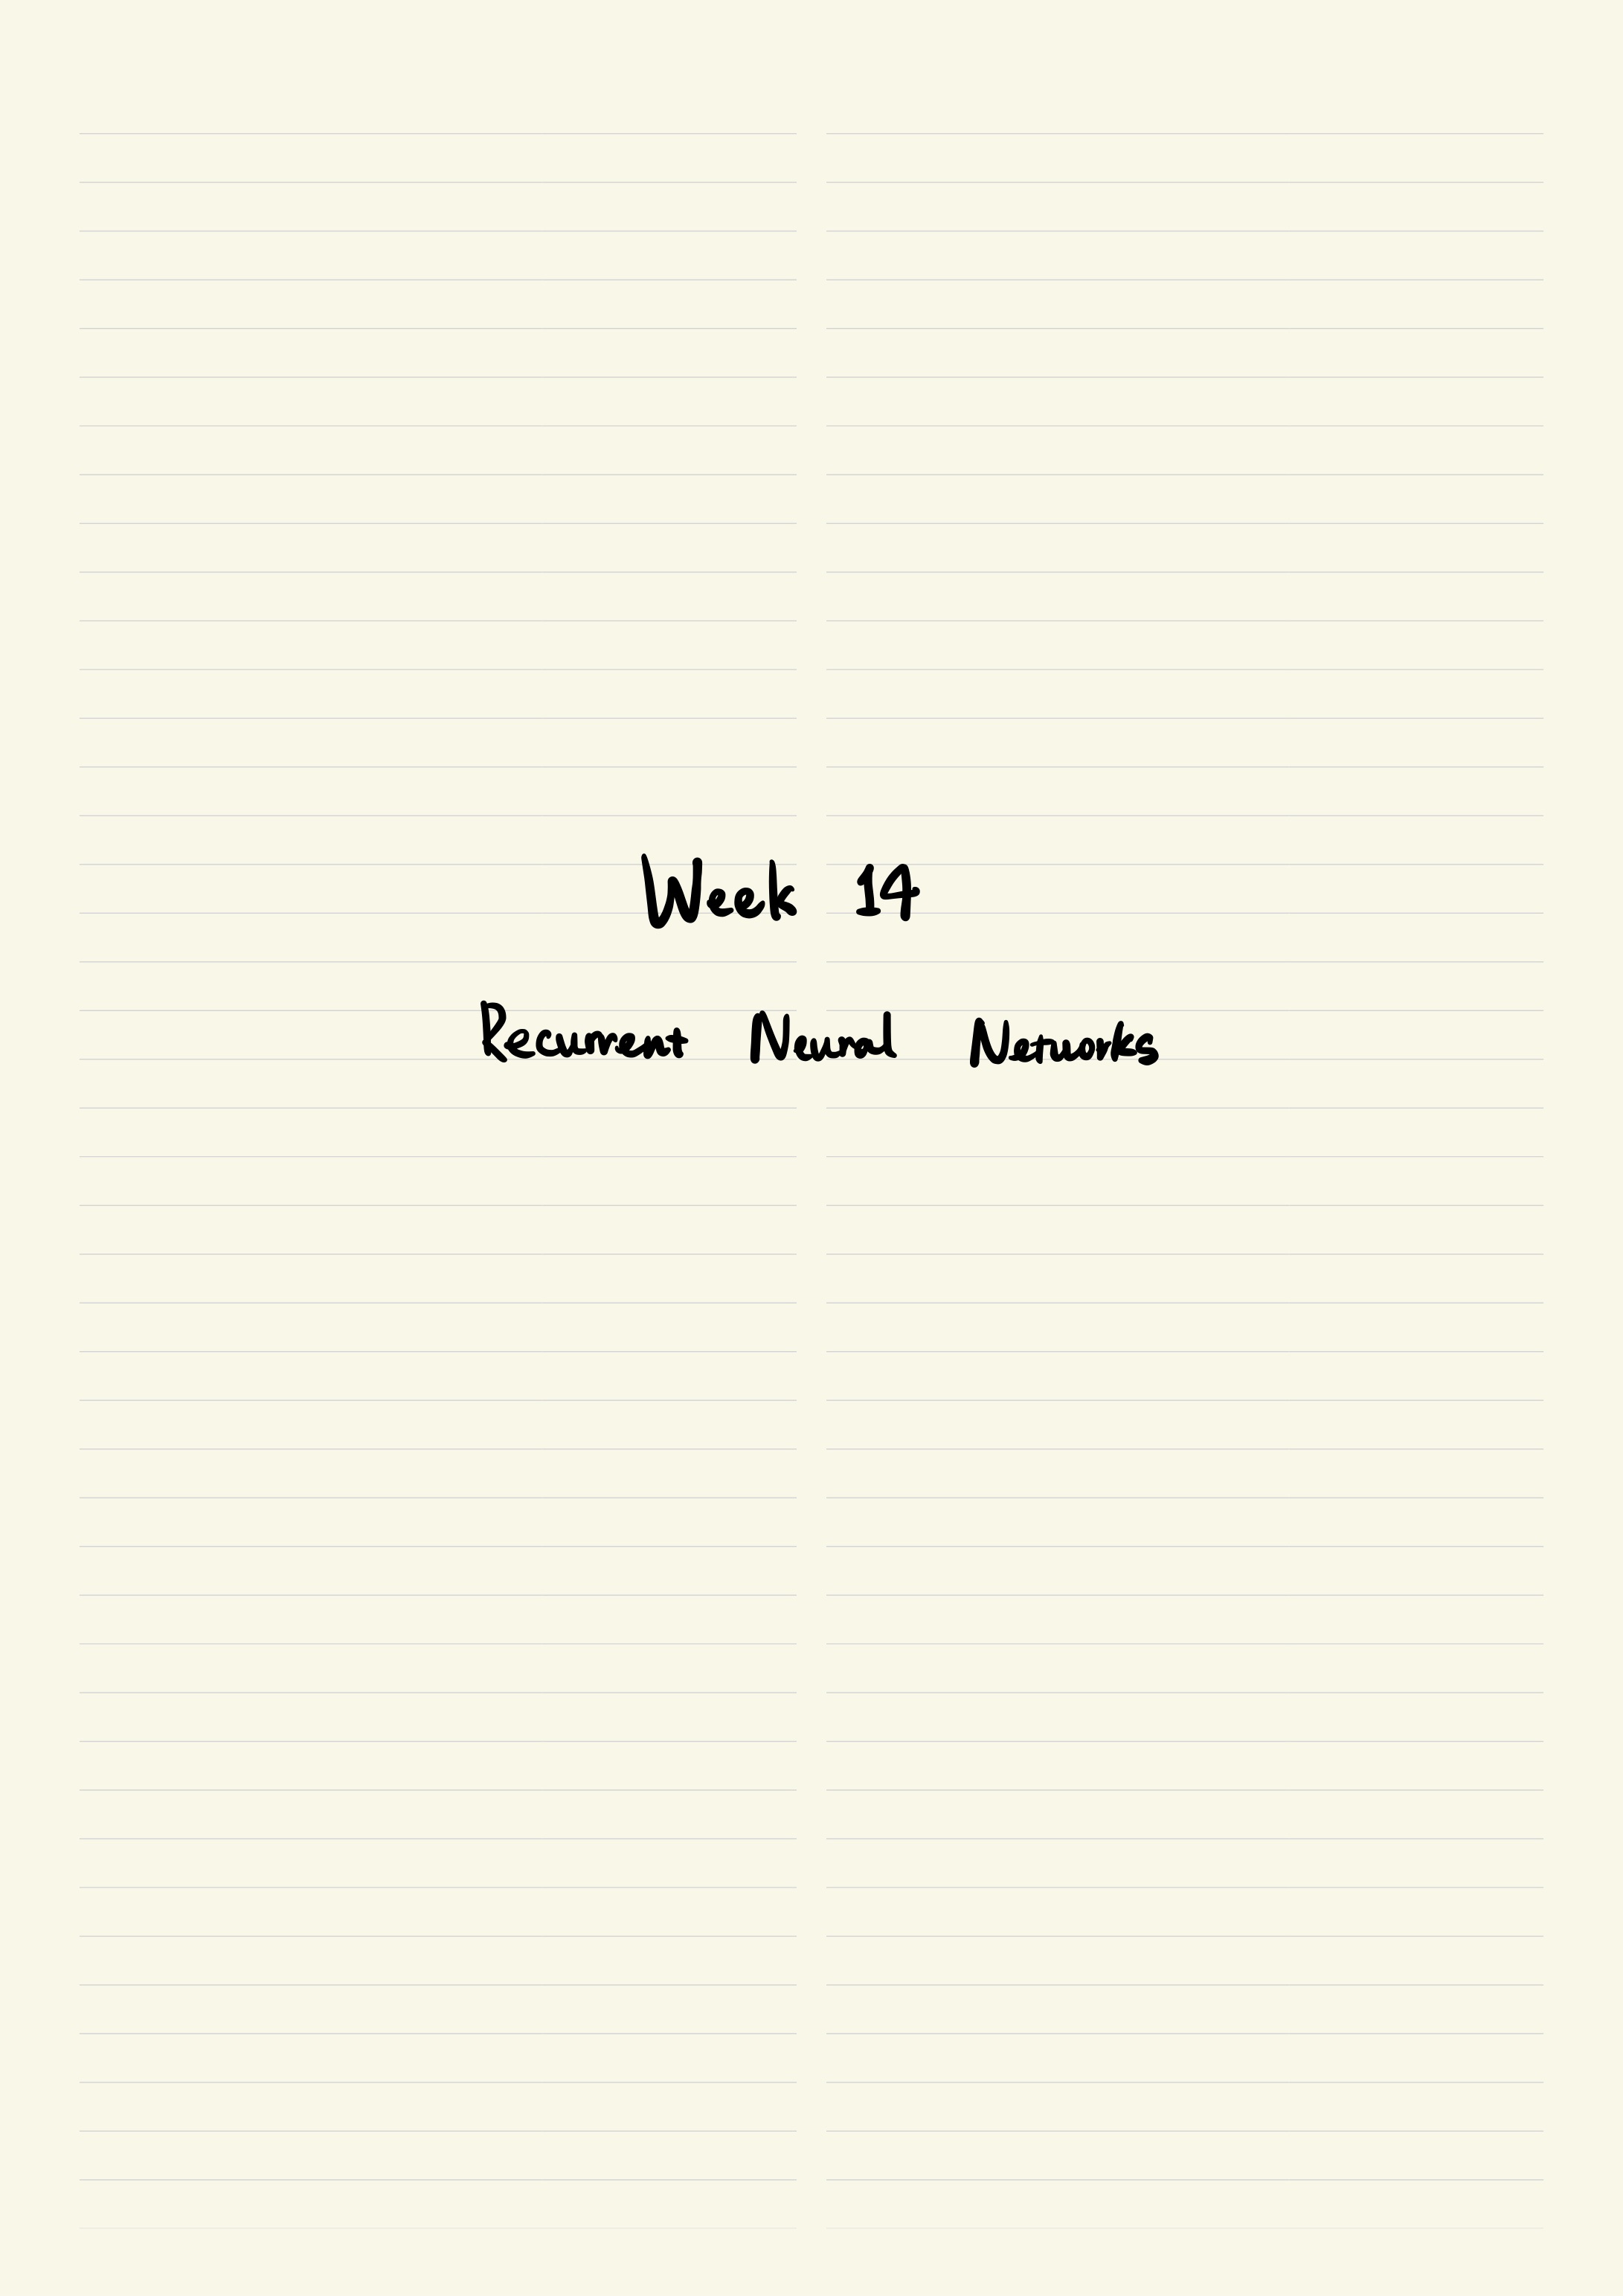 Week 14
Recurrent Neural Networks